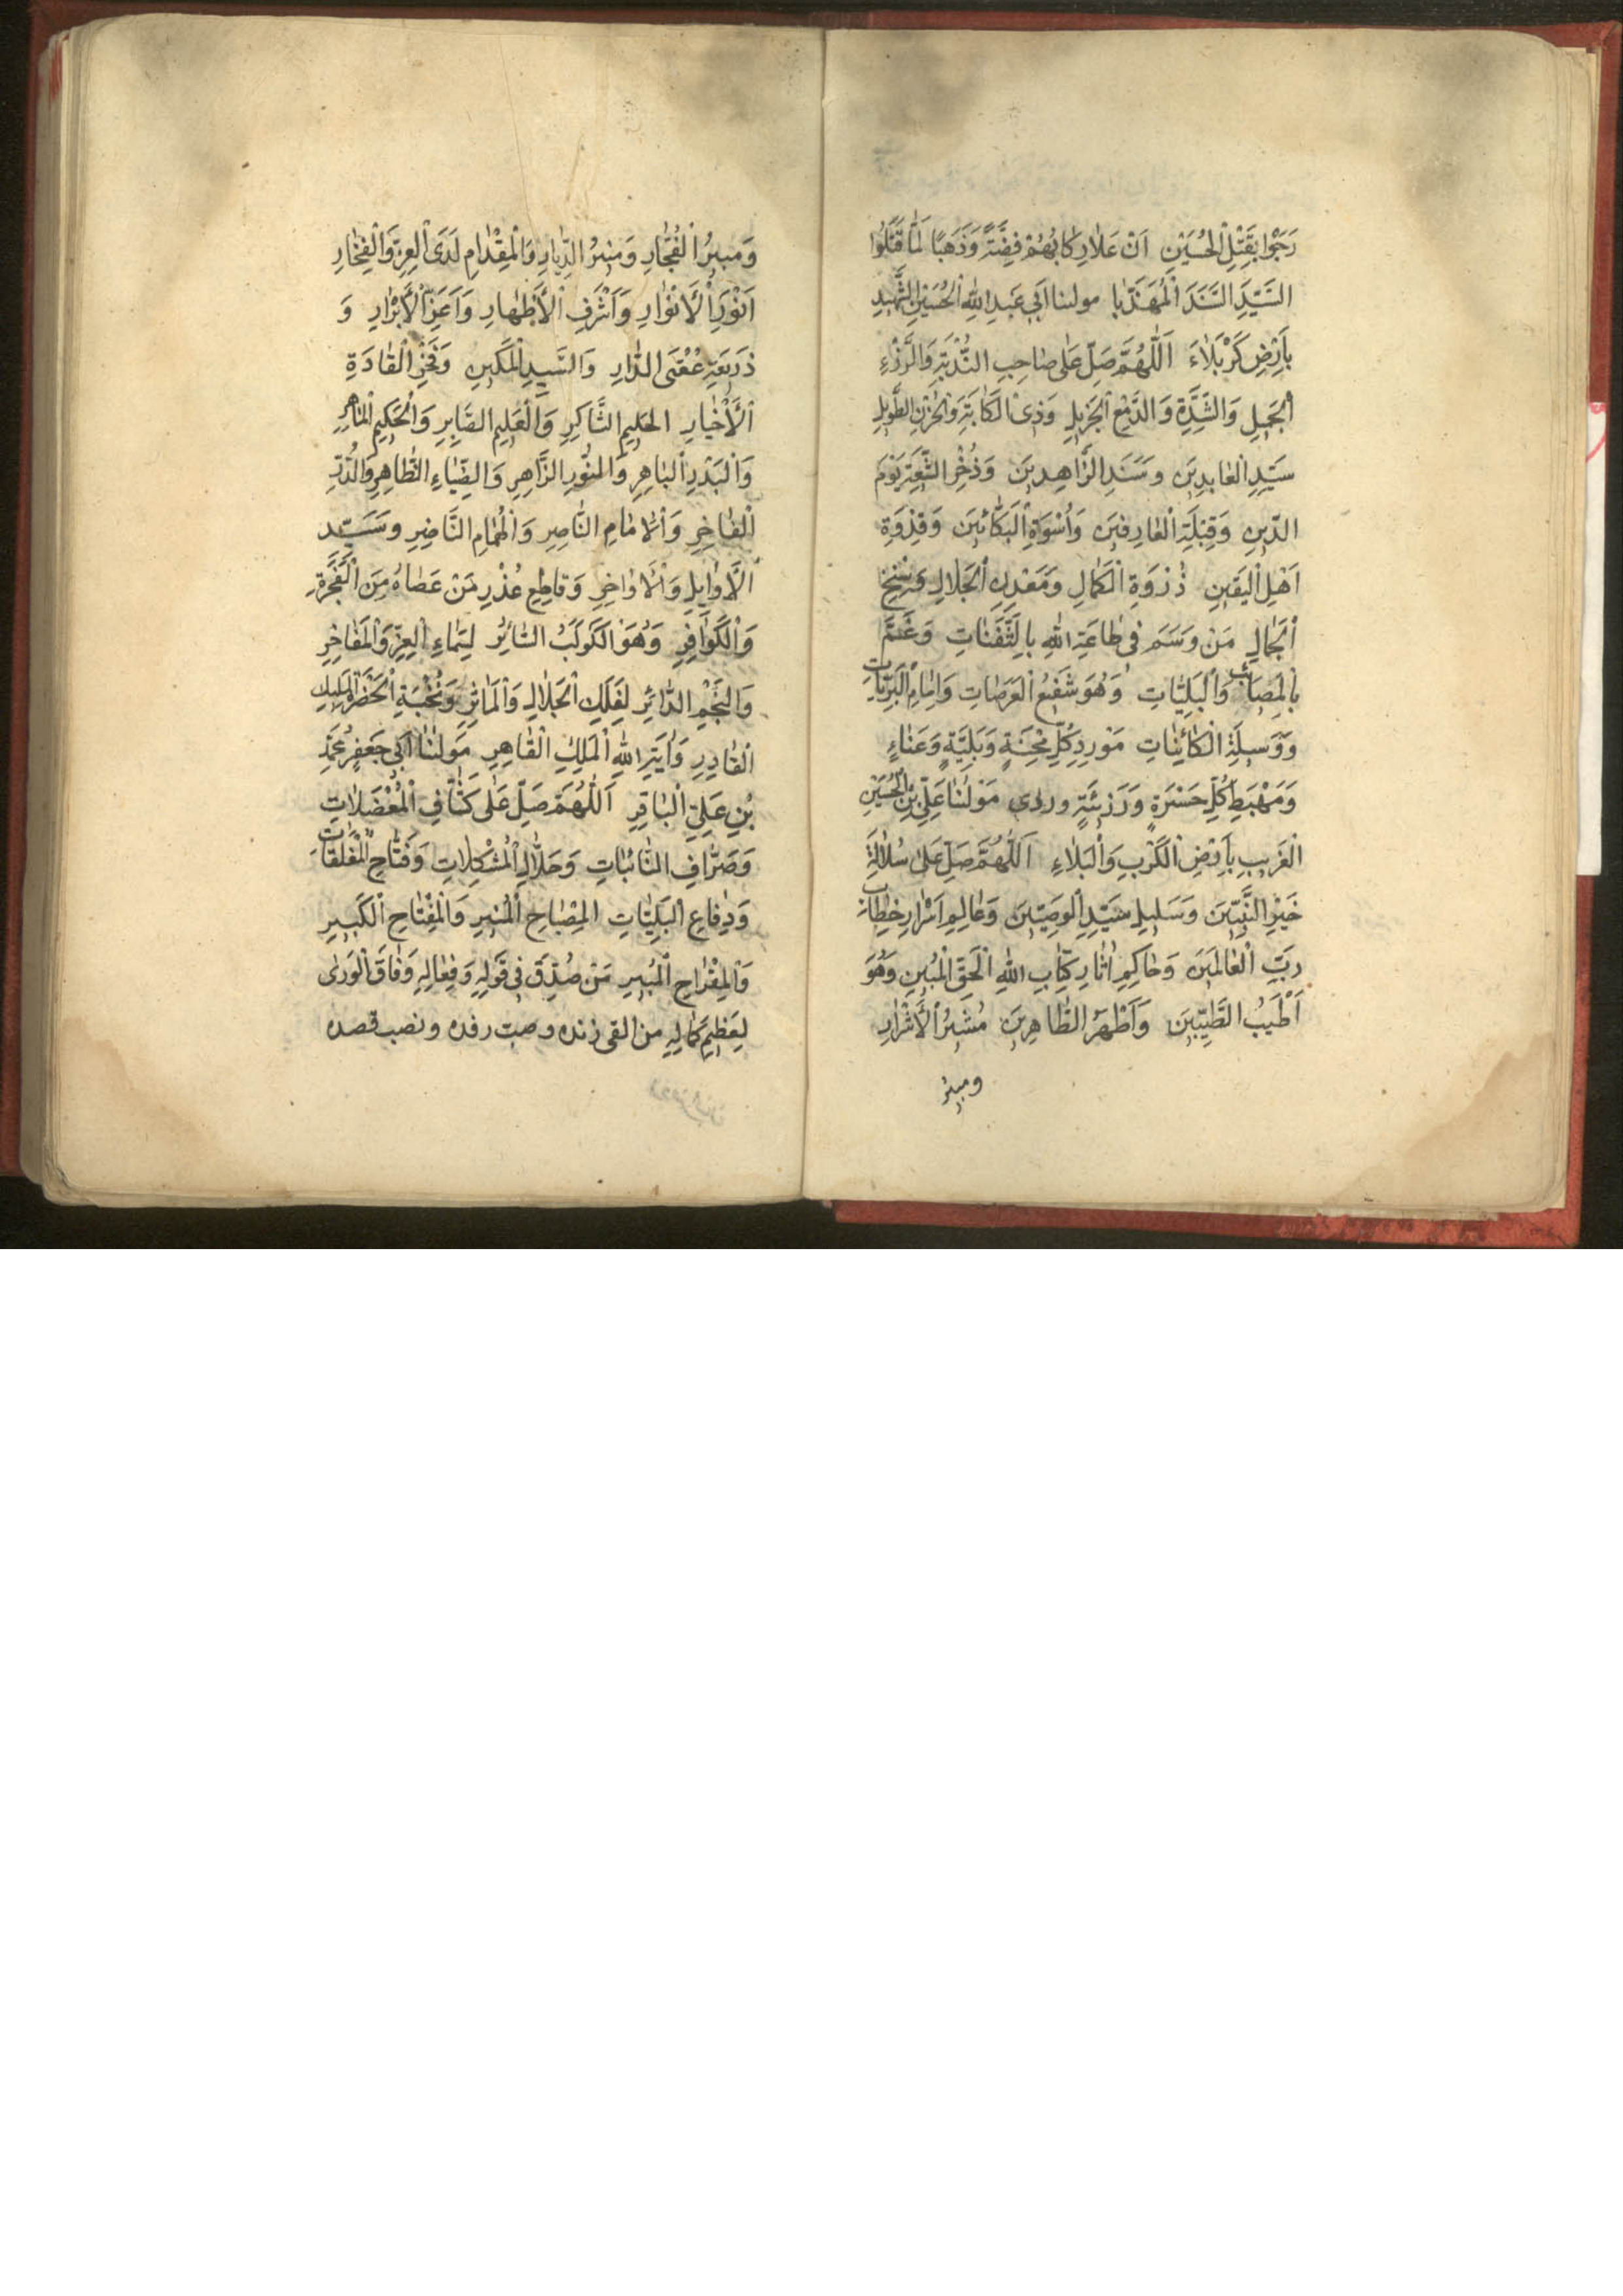 رَجَوْا بِقَتْلِ الْحُسَيْنِ اَنْ عَلَادِ كَابُهُمْ فِضَّةً وَذَهَبًا لَمَّا قَتَلُوا
السَّيِّدَ السَّنَدَ الْمُهَذَّبا مولىنا اَبي عَبدِ اللهِ الْحُسَيْنِ الشَّهِيدِ
بِاَرْضِ كَرْبَلَاءَ اَللّٰهُمَّ صَلِّ عَلٰى صَاحِبِ النُّدْبَةِ وَالرُّزْءِ
الْجَمِيلِ وَالشِّدَّةِ وَالدَّمْعِ الْجَزِيلِ وَذِى الْكَابَةِ وَالْحُزْنِ الطَّوِيلِ
سَيِّدِ الْعَابِدِينَ وسَنَدِ الزَّاهِدِينَ وَذُخْرِ الشِّيعَةِ يَوْمَ
الدّينِ وَقِبْلَةِ الْعَارِفينَ وَاُسْوَةِ الْبَكَّائينَ وَقِدْوَةِ
اَهْلِ الْيَقينِ ذُرْوَةِ الْكَمَالِ وَمَعْدِنِ الْجَلَالِ وَسِنْخِ
الْجَمالِ مَنْ وَسَمَ فى طَاعَةِ اللهِ بِالثَّفَنَاتِ وَعُمَّ
بِالْمَصَائب وَالْبَلِيَّاتِ وَهُوَ شَفيعُ الْعَرَصَاتِ وَاِمَامُ الْبَرِيَّاتِ
وَوَسيلَةِ الْكَائِنَاتِ مَوْرِدِ كُلِّ مِحْنَةٍ وَبَلِيَّةٍ وَعَنَاءٍ
وَمَهْبِطِ كُلِّ حَسْرَةٍ وَرَزِيئَةٍ وردى مَوْلٰنَا عَلِيِّ بْنِ الْحُسَيْنِ
الْغَرِيبِ بِاَرْضِ الْكَرْبِ وَالْبَلَاءِ اَللّٰهُمَّ صَلِّ عَلٰى سُلَالَةِ
خَيْرِ النَّبِيّينَ وَسَليلِ سَيِّدِ الْوَصِيّينَ وَعَالِمِ اَسْرَارِ خِطَابِ
رَبِّ الْعَالَمينَ وَحَاكِمِ اٰثَارِ كِتَابِ اللهِ الْحَقِّ الْمُبينِ وَهُوَ
اَطْيَبُ الطَّيِّبينَ وَاَطْهَرُ الطَّاهِرينَ مُشيرُ الْاَشْرَارِ
ومبيرُ
وَمُبيرُ الْفُجَّارِ وَمُنيرُ الدِّيَارِ وَالْمِقْدَامِ لَدَى الْعِزِّ وَالْفَخَارِ
اَنْوَرِ الْاَنْوَارِ وَاَشْرَفِ الْاَطْهَارِ وَاَعَزِّ الْاَبْرَارِ وَ
ذَرِيعَةِ عُقْبَى الدَّارِ وَالسَّيِّدِ الْمَكينِ وَفَخْرِ الْقَادَةِ
الْاَخْيَارِ الحَليمِ الشَّاكِرِ وَالْعَليمِ الصَّابِرِ وَالْحَكيمِ الْمَاهِرِ
وَالْبَدْرِ الْبَاهِرِ وَالنُّورِ الزَّاهِرِ وَالضِّيَاءِ الظَّاهِرِ وَالدُّرِّ
الْفَاخِرِ وَالْاِمَامِ النَّاصِرِ وَالْهُمَامِ النَّاضِرِ وسَيِّد
الْاَوَايِلِ وَالْاَوَاخِرِ وَقَاطِعِ عُذْرِ مَنْ عَصَاهُ مِنَ الْفَجَرَةِ
وَالْكَوَافِرِ وَهُوَ الْكَوكَبُ السَّائِرُ لِسَمَاءِ الْعِزِّ وَالْمَفَاخِرِ
وَالنَّجْمِ الدَّائِرِ لِفَلَكِ الْجَلَالِ وَالْمَاثِرِ وَنُخْبَةِ الْحَضْرَةِ الْمَلِيكِ
الْقَادِرِ وَاٰيَةِ اللهِ الْمَلِكِ الْقَاهِرِ مَوْلٰنَا اَبي جَعْفَرٍ مُحَمَّدِ
بْنِ عَلِيٍّ الْبَاقِرِ اَللّٰهُمَّ صَلِّ عَلٰى كَشَّافِ الْمُعْضَلَاتِ
وَصَرَّافِ النَّائِبَاتِ وَحَلَّالِ الْمُشْكِلَاتِ وَفَتَّاحِ الْمُغْلَقَاتِ
وَدِفَاعِ الْبَلِيَّاتِ المِصْبَاحِ الْمُنيرِ وَالْمِفْتَاحِ الْكَبيرِ
وَالْمِقْرَاحِ الْمُبيرِ مَنْ صُدِّقَ فى قَوْلِهِ وَفِعَالِهِ وَفَاقَ الْوَرٰى
لِعَظيمِ كَمَالِهِ من القى زنده وصبت رفده ونصب قصده